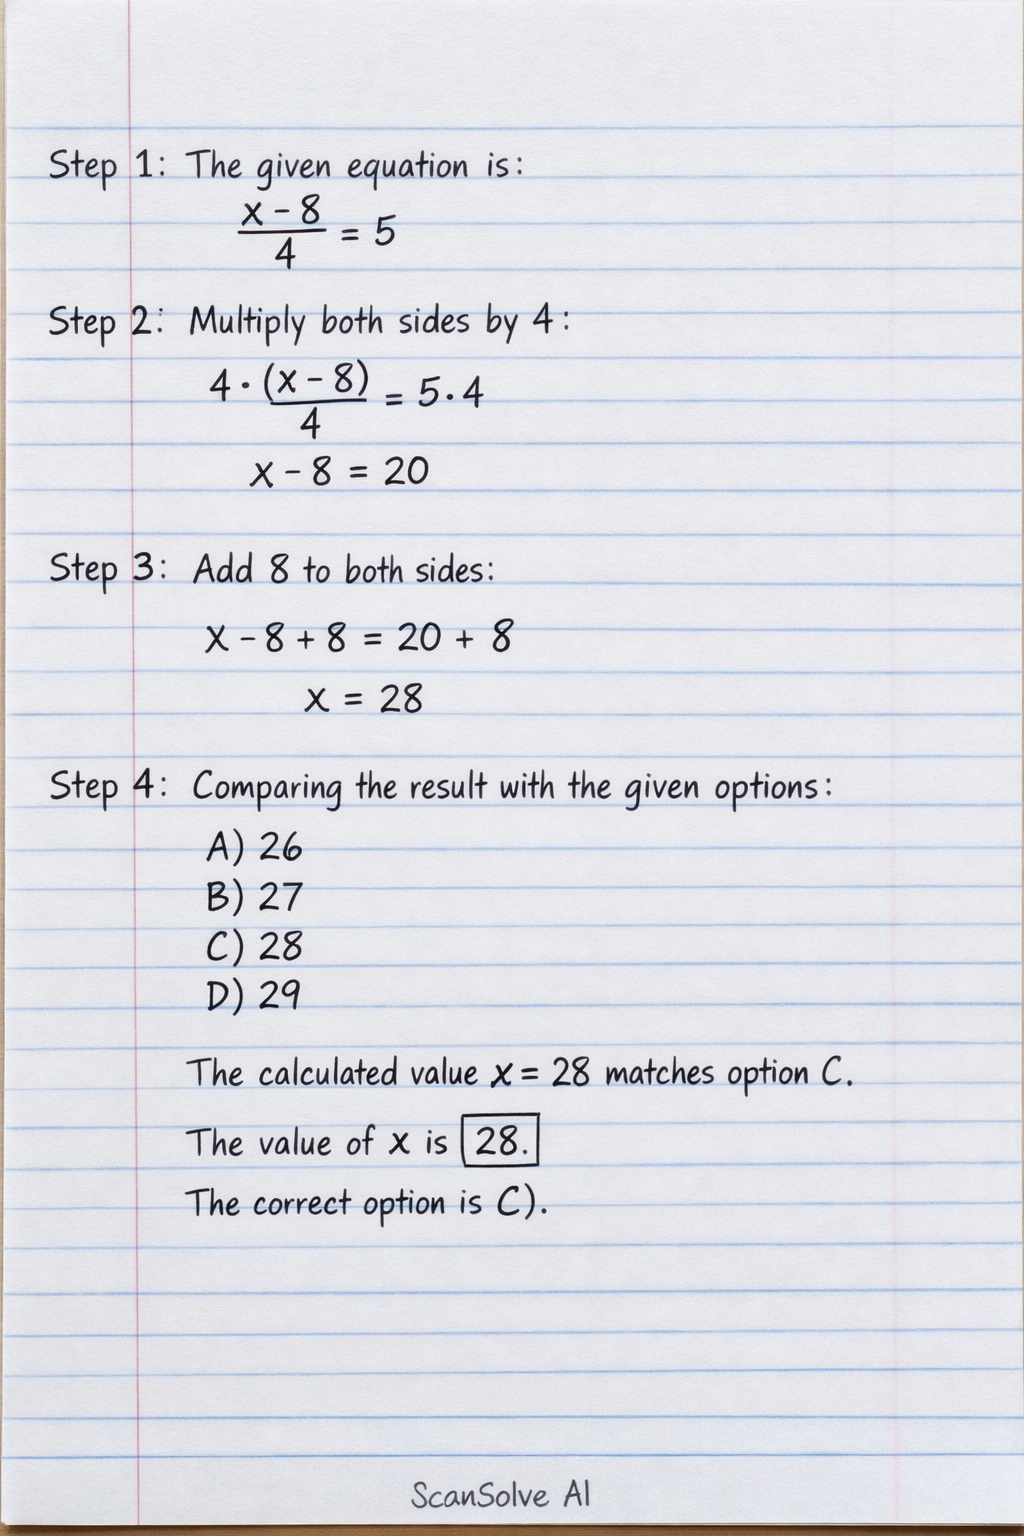 Step 1: The given equation is:
x - 8
4
= 5
Step 2: Multiply both sides by 4:
4 · (x - 8)
4
= 5 · 4
x - 8 = 20
Step 3: Add 8 to both sides:
x - 8 + 8 = 20 + 8
x = 28
Step 4: Comparing the result with the given options:
A) 26
B) 27
C) 28
D) 29
The calculated value x = 28 matches option C.
The value of x is 28.
The correct option is C).
ScanSolve AI